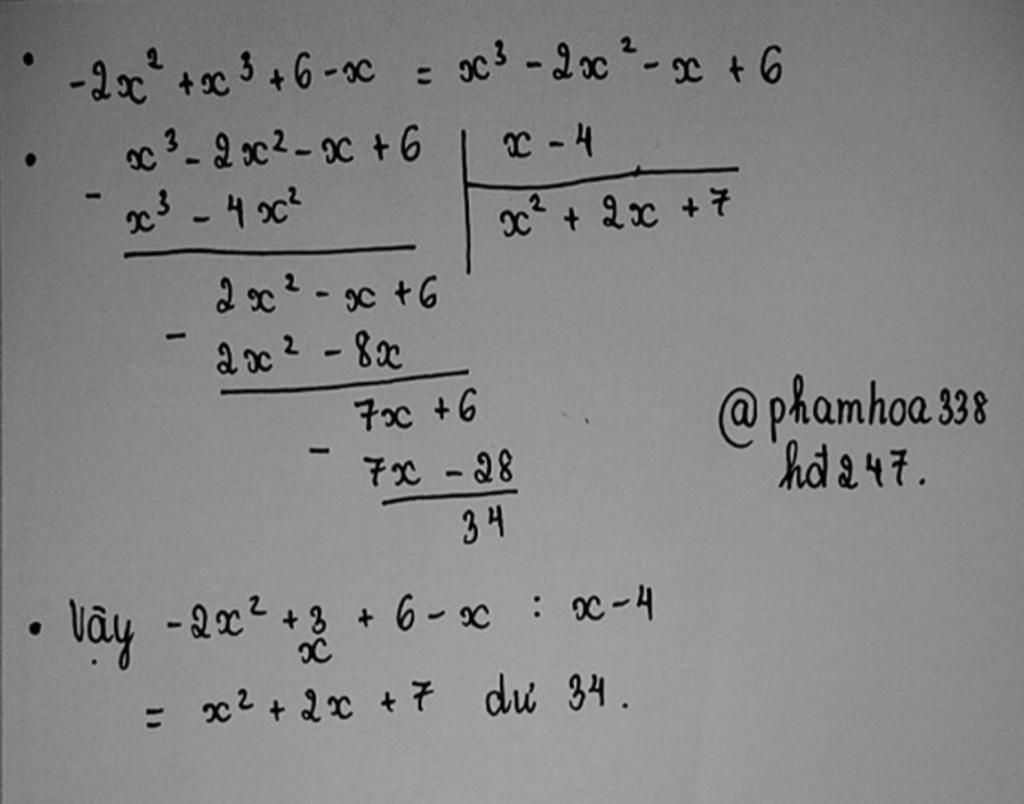 • -2x² + x³ + 6 - x = x³ - 2x² - x + 6
• x³ - 2x² - x + 6 | x - 4
- x³ - 4x² | x² + 2x + 7
2x² - x + 6
- 2x² - 8x
7x + 6
- 7x - 28
34
@phamhoa338
hđ247.
• Vậy -2x² + 3 + 6 - x : x - 4
x
= x² + 2x + 7 dư 34.